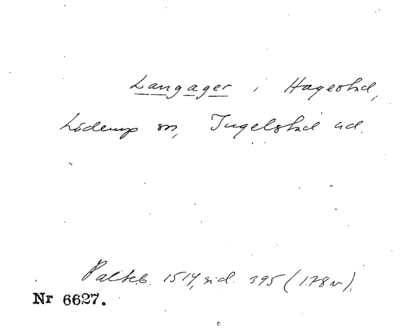 Langager i Hagestad,
Löderup sn, Ingelstad hd.
Palteb. 1514, sid. 395 (178v).
Nr 6627.